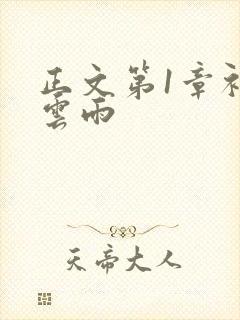 正文第1章初
雲雨
天帝大人